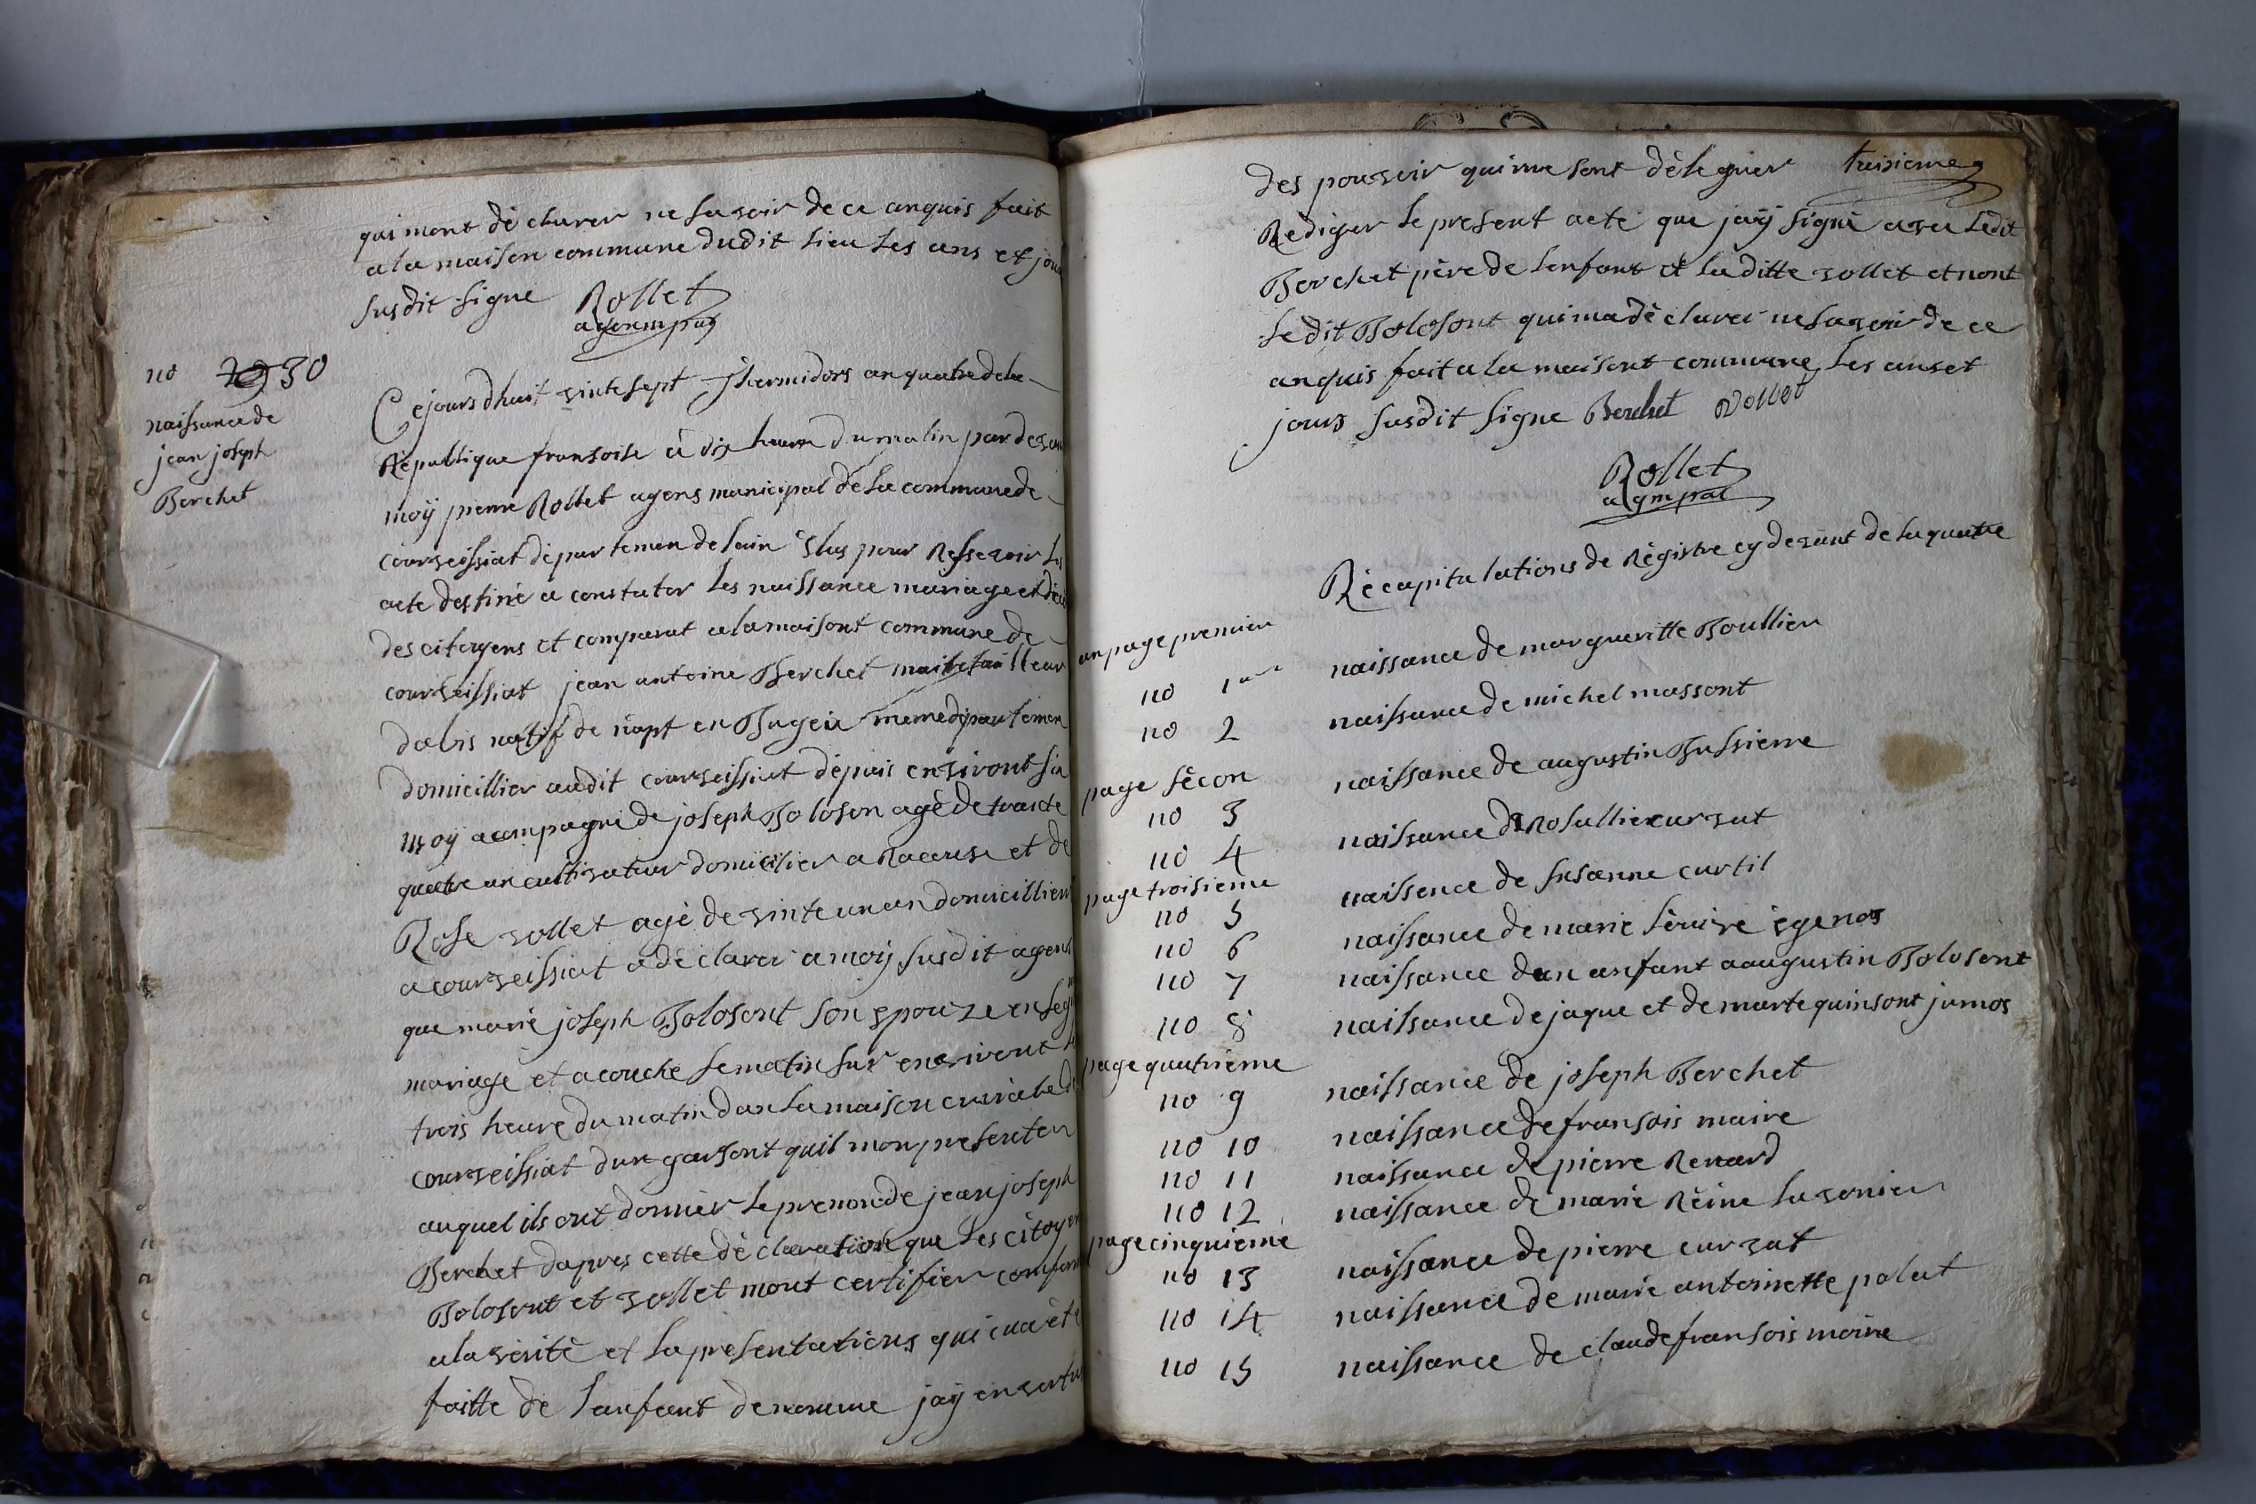 qui mont déclarer ne savoir de ce anquis fait
a la maison commune dudit lieu les ans et jou
susdit signe Rollet
agenmpal
no 30
naissance de
jean joseph
Berchet
Cejourdhuit vintesept Thermidors an quatre de la
République fransoise à dix heure du matin par devan
moÿ pierre Rollet agens municipal de la commune de
courveissiat département de lain élus pour Ressevoir les
acte destiné a constater les naissance mariage et décè
des citoyens et comparut a la maisont commune de
courveissiat jean antoine Berchet maitetailleur
dabis natif de napt en Bugeix meme département
domicillier audit courveissiat dépuis environt six
moÿ acompagné de joseph Boloson agé de trante
quatre an cultivateur domicilier a Racouse et de
Rose vollet agé de vinte un an domicillier
a courveissiat a déclarer a moÿ susdit agen
que marie joseph Bolosont son epouze en se
mariage et acouche le matin sur environt
trois heure du matin dan la maison curiale d
courveissiat dun garsont quil mon presenter
auquel ils ont donnér le prenon de jean joseph
Berchet dapres cette déclaration que les citoyen
Bolosont et vollet mont certifier conform
a la vérité et la présentations qui ma été
faitte de lanfant denomme jaÿ en vertu
des pouvoir qui me sont déleguer treisieme
Rediger le present acte que jaÿ signé avec ledit
Berchet père de lenfant et laditte vollet et nont
ledit Bolosont qui ma déclarer ne savoir de ce
anquis fait a la maisont commune les ans et
jours susdit signe Berchet vollet
Rollet
agmpal
Récapitulations de Régistre cy devant de la quatre
an page premier
no 1er naissance de margueritte Boullier
no 2 naissance de michel massont
page sécon
no 3 naissance de augustin Bussierre
no 4 naissance de Rosallie curvat
page troisieme
no 5 naissence de susanne curtil
no 6 naissance de marie
no 7 naissance dun anfant a augustin Bolosont
no 8 naissance de jaque et de marte quinsont jumos
page quatrième
no 9 naissance de joseph Berchet
no 10 naissance de fransois maire
no 11 naissance de pierre Renard
no 12 naissance de marie Réine lavonier
page cinquième
no 13 naissance de pierre curvat
no 14 naissance de marie antoinette palat
no 15 naissance de claude fransois moine